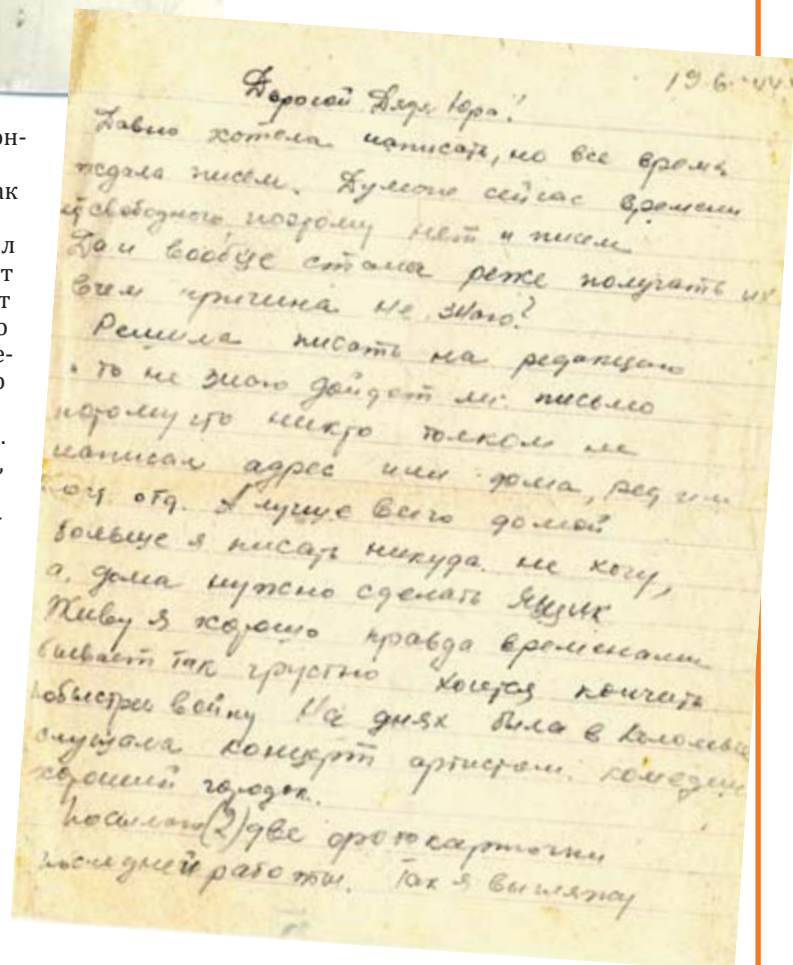 он-
ак
л
т
т
о
е-
о
.
,
.
19.6.44
Дорогой Дядя Юра!
Давно хотела написать, но все время
ждала писем. Думаю сейчас времени
свободного, поэтому нет и писем
Да и вообще стала реже получать их
В чем причина не знаю?
Решила писать на редакцию
то не знаю дойдет ли письмо
потому что никто толком не
написал адрес или дома, ред или
отд. А лучше всего домой
больше я писать никуда не хочу,
а дома нужно сделать ящик
Живу я хорошо правда временами
бывает так грустно хочется кончить
побыстрей войну На днях была в Коломые
слушала концерт артистов комедии
хороший городок.
Посылаю (2) две фотокарточки
последней работы. Так я выгляжу